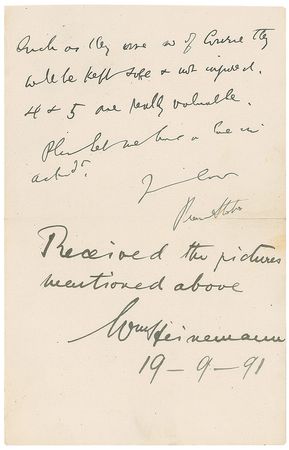 Such as they are & of course they
will be kept safe & not injured.
4 & 5 are really valuable.
Please let me have a line in
Bram Stoker
Received the pictures
mentioned above
Wm Heinemann
19-9-91